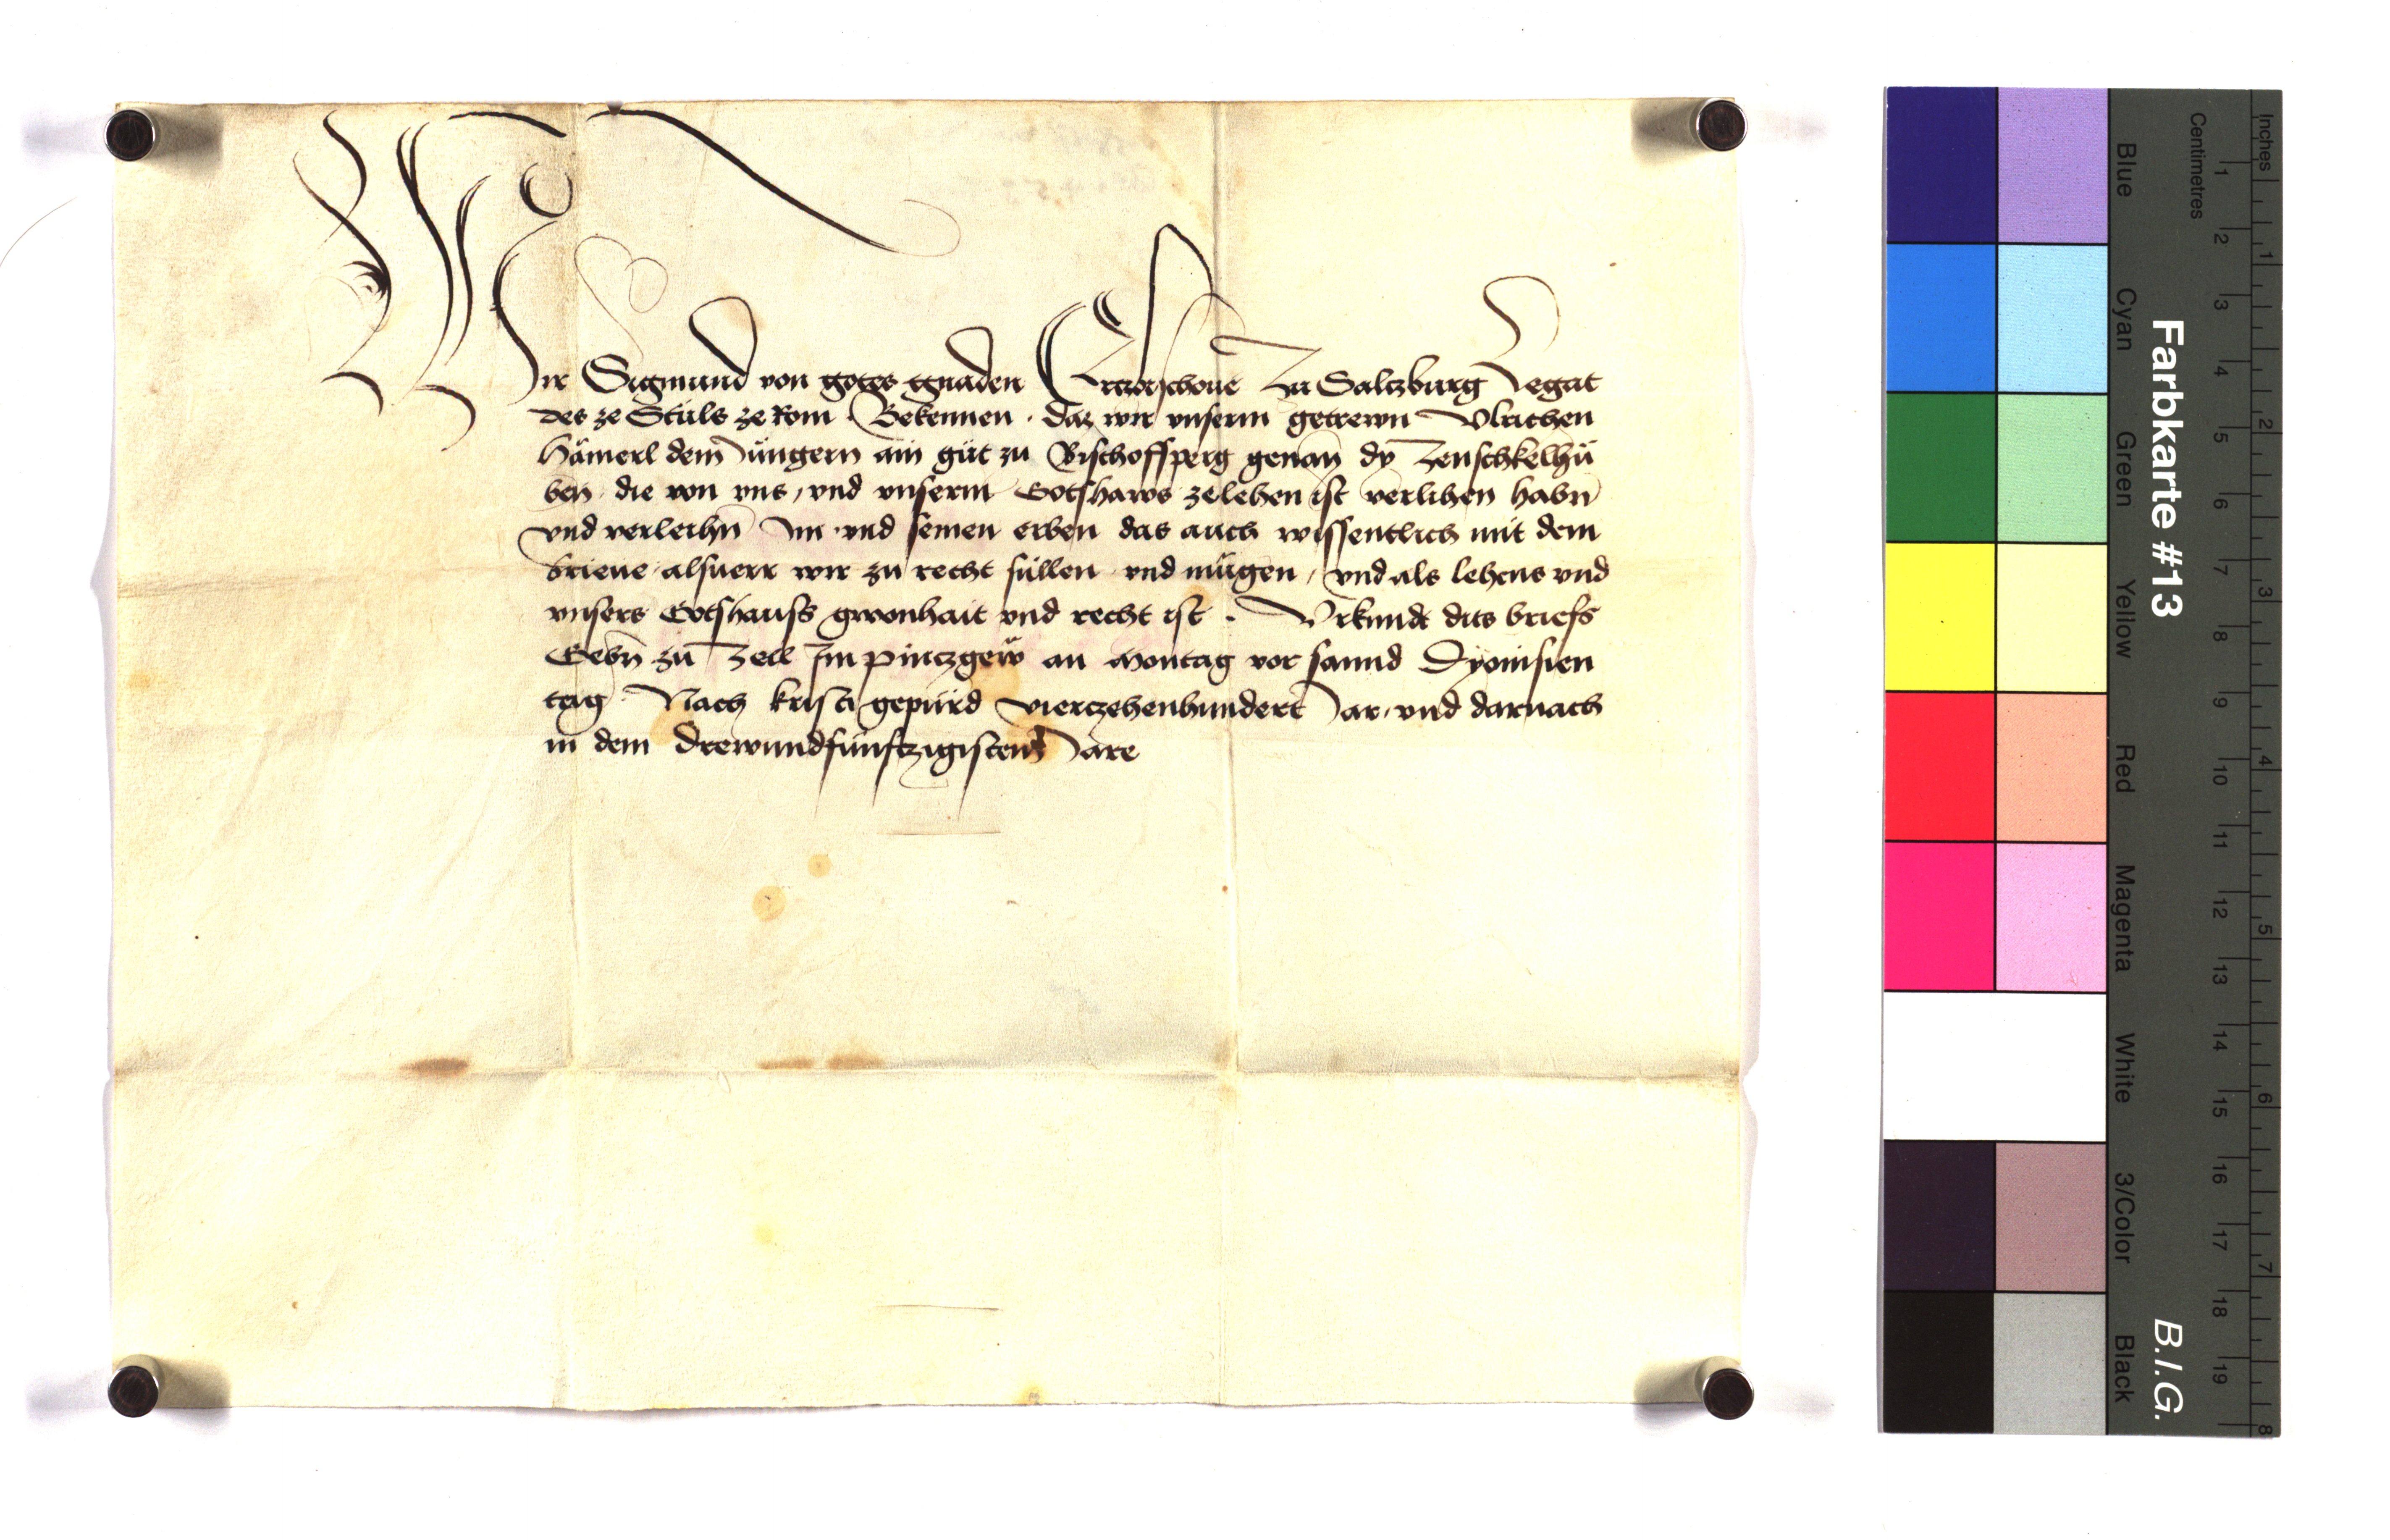 Wir Sigmund von gotes gnaden Ertzbischoue Zu Saltzburg Legat
des ze Stuls ze Rom . Bekennen . daz wir vnserm getrewn Vlrichen
Hämerl dem Jüngern ain gůt zu Bischoffsperg genan̄ dy Zenschkelhů
ben die von vns, vnd vnserm Gotshaws ze lehen ist verlihen habn̄
vnd verleihn̄ Im vnd seinen erben das auch wissentlich mit dem
brieue alsuerr wir zu recht süllen vnd mügen, vnd als lehens vnd
vnsers Gotshauss gwonhait vnd recht ist . Vrkundt dits briefs
Gebn̄ zu Zell Im pintzgew an Montag vor sannd Dyonisien
tag Nach kristi gepürd vierczehenhundert Jar, vnd darnach
in dem Drewundfünftzigisten Jare
Farbkarte #13
B.I.G.
Blue Cyan Green Yellow Red Magenta White 3/Color Black
Centimetres 1 2 3 4 5 6 7 8 9 10 11 12 13 14 15 16 17 18 19
Inches 1 2 3 4 5 6 7 8